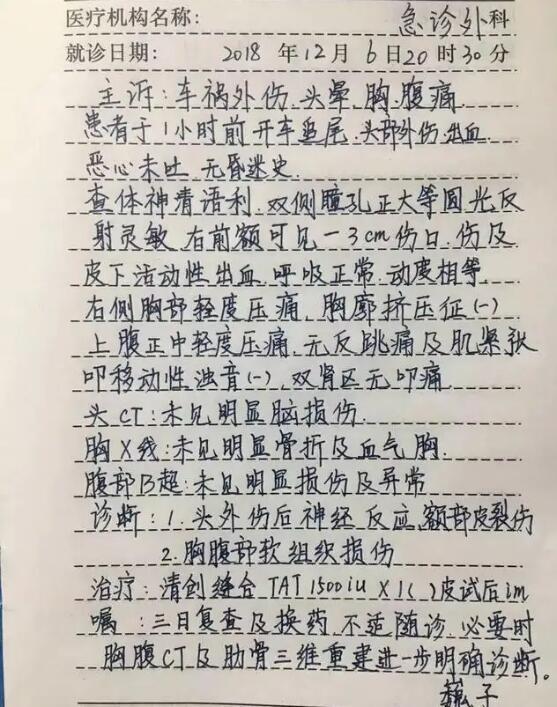 医疗机构名称: 急诊外科
就诊日期: 2018 年 12 月 6 日 20 时 30 分
主诉:车祸外伤.头晕.胸.腹痛
患者于1小时前开车追尾.头部外伤.出血
恶心未吐.无昏迷史.
查体神清语利.双侧瞳孔正大等圆光反
射灵敏.右前额可见一3cm伤口.伤及
皮下活动性出血.呼吸正常.动度相等.
右侧胸部轻度压痛.胸廓挤压征(-)
上腹正中轻度压痛.无反跳痛及肌紧张
叩移动性浊音(-).双肾区无叩痛.
头CT:未见明显脑损伤.
胸X线:未见明显骨折及血气胸.
腹部B超:未见明显损伤及异常
诊断:1.头外伤后神经反应.额部皮裂伤
2.胸腹部软组织损伤
治疗:清创缝合 TAT 1500iu X1( )皮试后im
嘱:三日复查及换药.不适随诊.必要时
胸腹CT及肋骨三维重建进一步明确诊断。